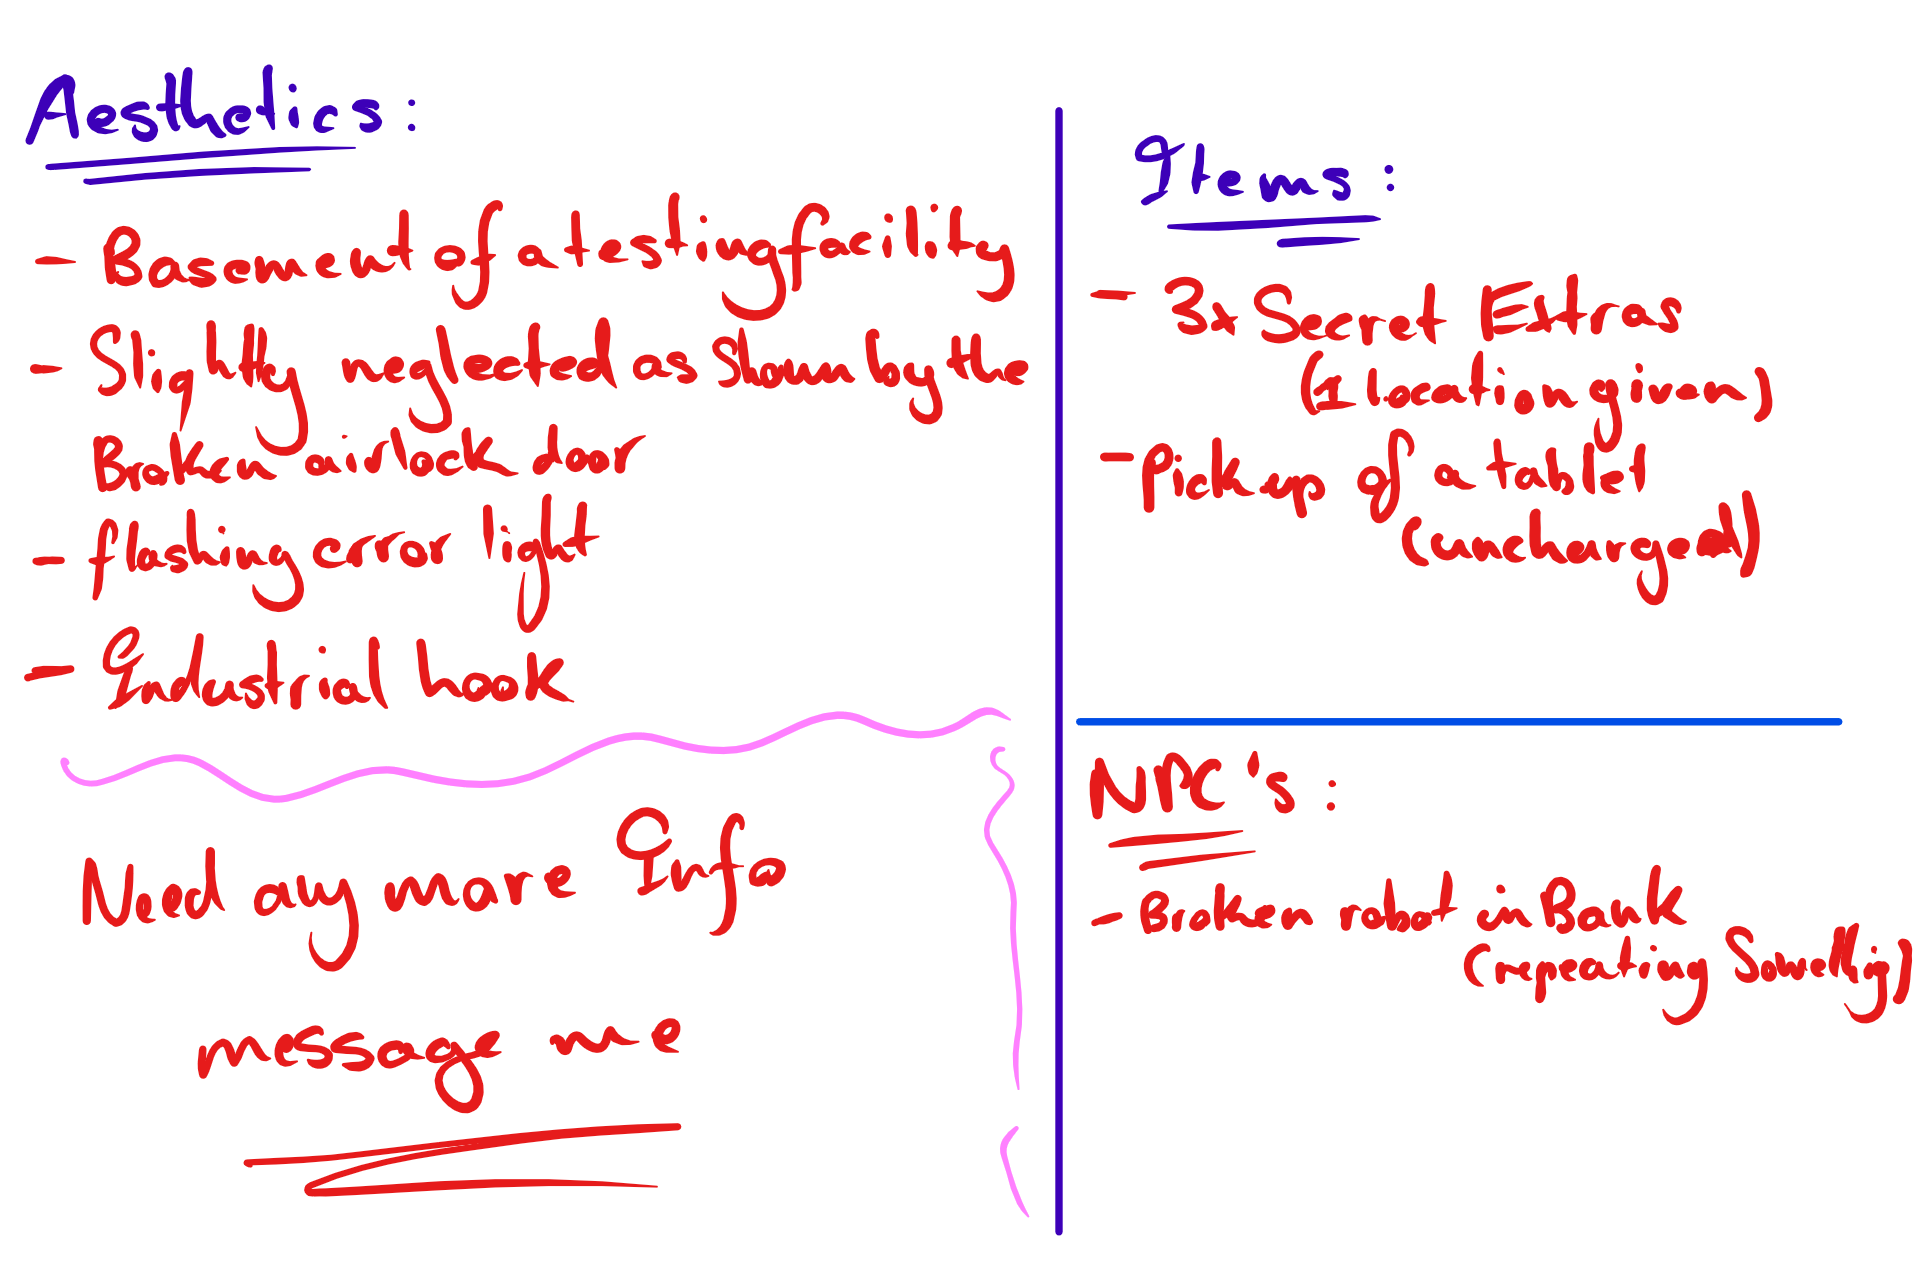 Aesthetics:
- Basement of a testing facility
- Slightly neglected as shown by the
Broken airlock door
- flashing error light
- Industrial hook
Need any more Info
message me
Items:
- 3x Secret Extras
(1 location given)
- Pick up of a tablet
(uncharged)
NPC's:
- Broken robot in Bank
(repeating Somethig)